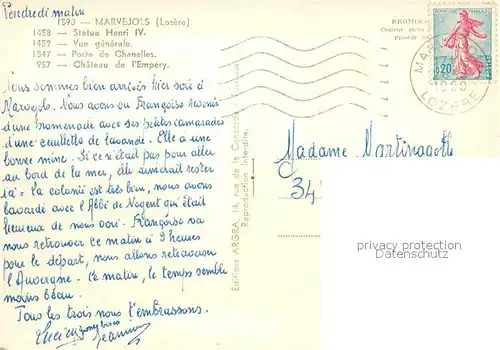 Vendredi matin
1593 — MARVEJOLS (Lozère)
1458 — Statue Henri IV.
1459 — Vue générale.
1547 — Porte de Chanelles.
957 — Château de l'Empery.
Nous sommes bien arrivés hier soir à
Marvejols. Nous avons vu Françoise revenir
d'une promenade avec ses petites camarades
d'une cueillette de lavande. Elle a une
bonne mine. Si ce n'était pas pour aller
au bord de la mer, elle aimerait rester
la colonie est très bien, nous avons
bavardé avec l'Abbé de Nogent qui était
heureux de nous voir. Françoise va
nous retrouver ce matin à 9 heures
pour le départ, nous allons retraverser
l'Auvergne. Ce matin, le temps semble
moins beau.
Tous les trois nous t'embrassons.
Lucien
Editions ARGRA, 14, rue de la Concorde
Reproduction Interdite.
BROMOCO
0,20
LOZERE
Madame Martin
34
privacy protection
oldthing.de